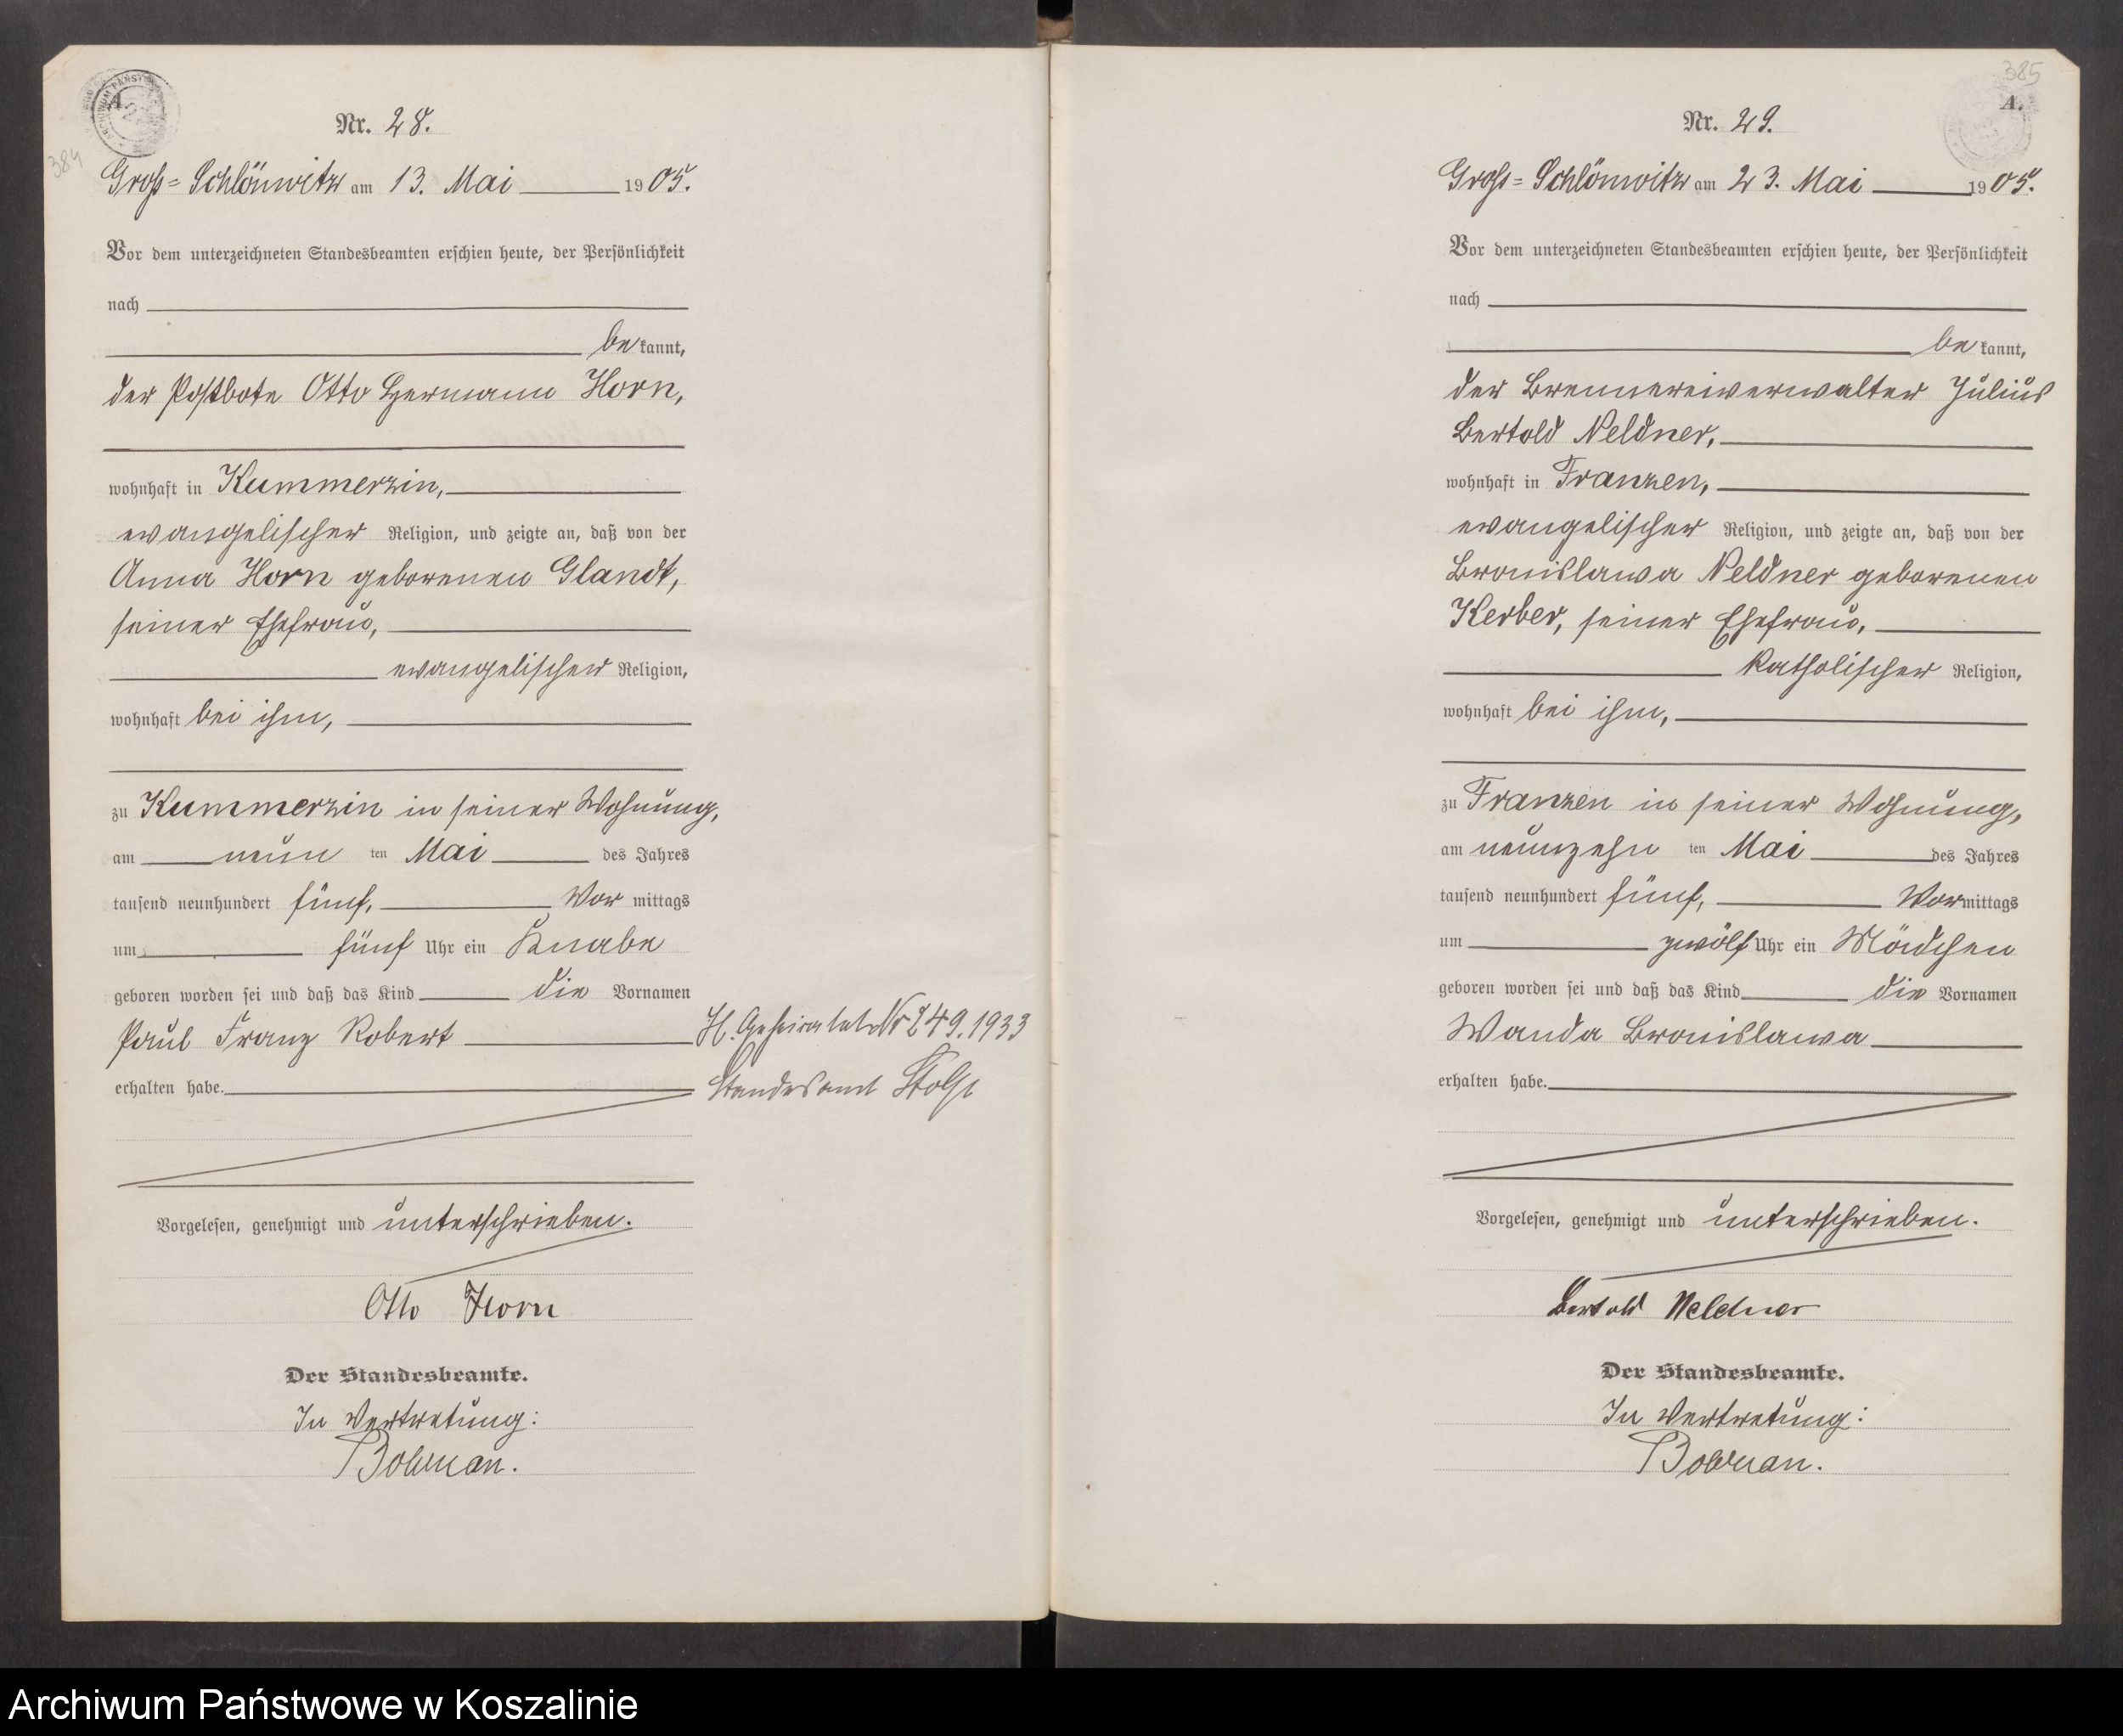 384
A.
Nr. 28.
Groß=Schlönwitz am 13. Mai 1905.
Vor dem unterzeichneten Standesbeamten erschien heute, der Persönlichkeit
nach
bekannt,
der Postbote Otto Hermann Horn,
wohnhaft in Kummerzin,
evangelischer Religion, und zeigte an, daß von der
Anna Horn geborenen Glandt,
seiner Ehefrau,
evangelischer Religion,
wohnhaft bei ihm,
zu Kummerzin in seiner Wohnung,
am neun ten Mai des Jahres
tausend neunhundert fünf, Vormittags
um fünf Uhr ein Knabe
geboren worden sei und daß das Kind die Vornamen
Paul Franz Robert
erhalten habe.
H. Geheiratet Nr 249.1933
Standesamt Stolp
Vorgelesen, genehmigt und unterschrieben.
Otto Horn
Der Standesbeamte.
In Vertretung:
385
A.
Nr. 29.
Groß=Schlönwitz am 23. Mai 1905.
Vor dem unterzeichneten Standesbeamten erschien heute, der Persönlichkeit
nach
bekannt,
der Brennereiverwalter Julius
Bertold Neldner,
wohnhaft in Franzen,
evangelischer Religion, und zeigte an, daß von der
Bronislawa Neldner geborenen
Kerber, seiner Ehefrau,
katholischer Religion,
wohnhaft bei ihm,
zu Franzen in seiner Wohnung,
am neunzehn ten Mai des Jahres
tausend neunhundert fünf, Vormittags
um zwölf Uhr ein Mädchen
geboren worden sei und daß das Kind die Vornamen
Wanda Bronislawa
erhalten habe.
Vorgelesen, genehmigt und unterschrieben.
Bertold Neldner
Der Standesbeamte.
In Vertretung:
Archiwum Państwowe w Koszalinie